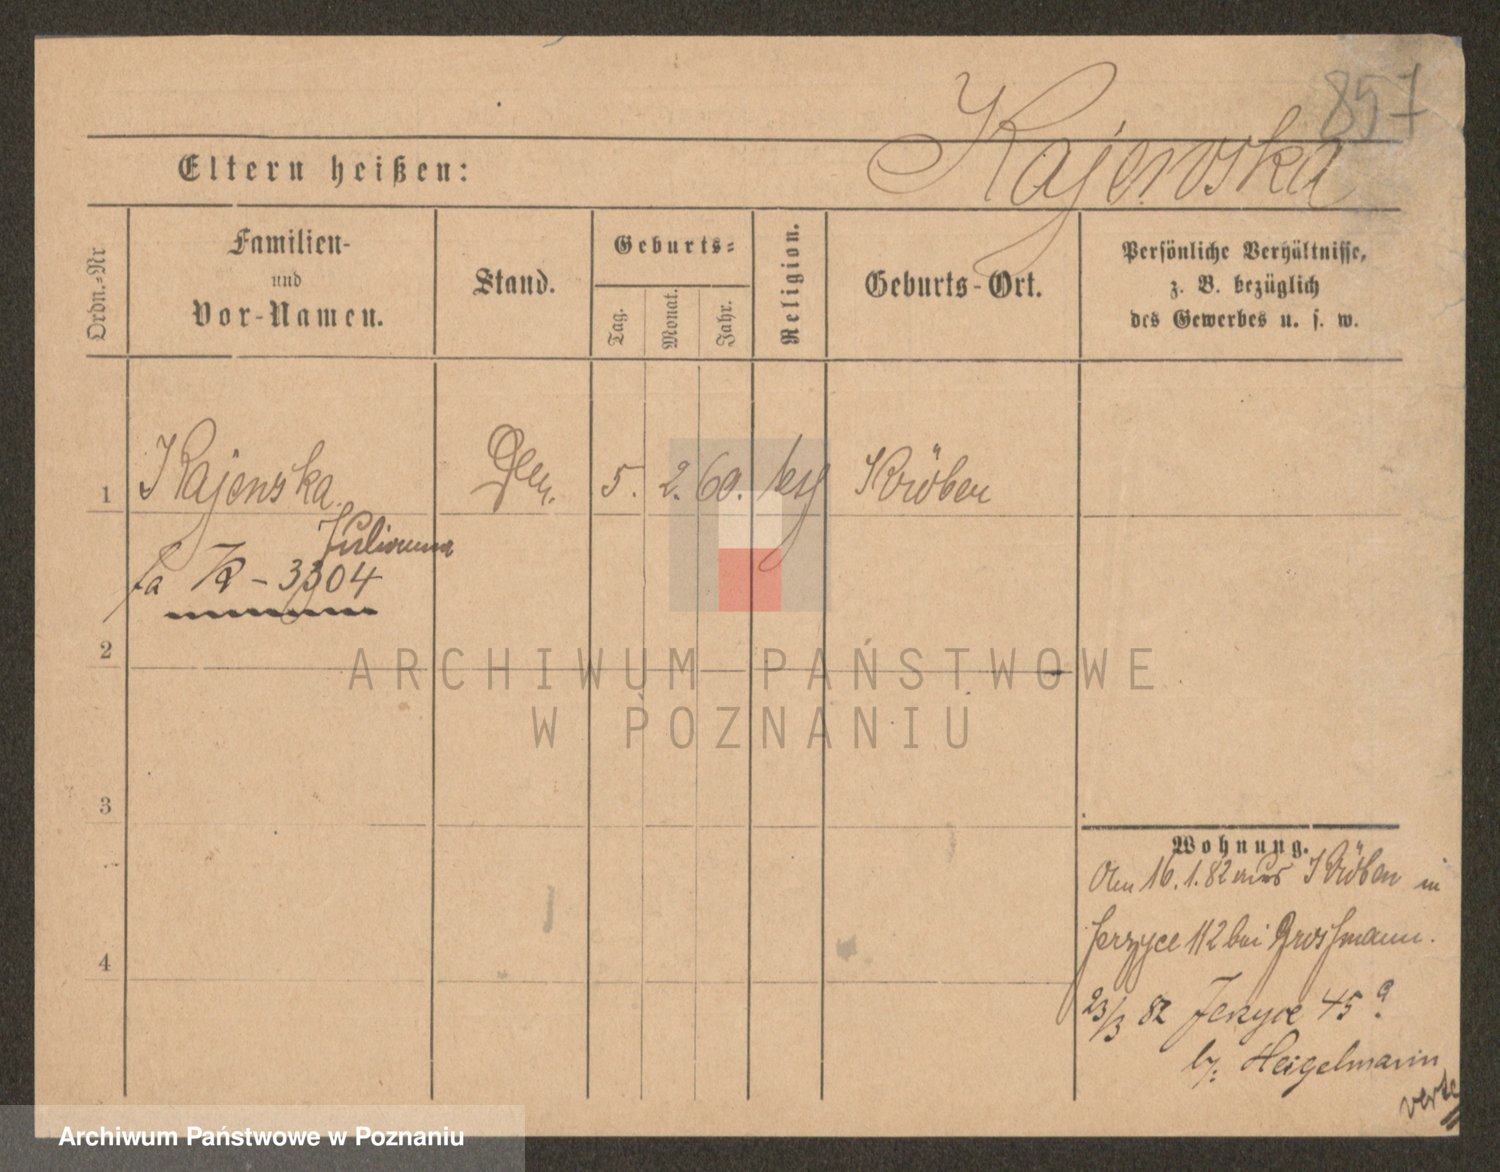 857
Kajewska
Eltern heißen:
Ordn.-Nr
Familien-
und
Vor-Namen.
Stand.
Geburts-
Tag.
Monat.
Jahr.
Religion.
Geburts-Ort.
Persönliche Verhältnisse,
z. B. bezüglich
des Gewerbes u. s. w.
1
Kajewska
Julianna
5. 2. 60.
Kröben
fa K - 3304
2
3
4
ARCHIWUM PAŃSTWOWE
W POZNANIU
Wohnung.
16.1.82 aus Kröben in
Jerzyce 112 bei Grossmann.
23/3 82 Jerzyce 45a
b/: Heigelmann
verte
Archiwum Państwowe w Poznaniu